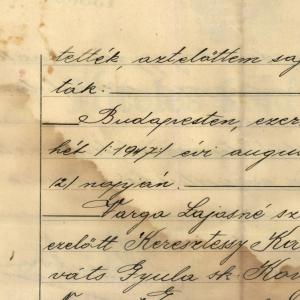 tették, aztelőttem saj
ták.
Budapesten, ezer
hét /:1947:/ évi augus
/2/ napján.
Varga Lajosné sz
ezelőtt Keresztessy Kár
váts Gyula sk. Kov